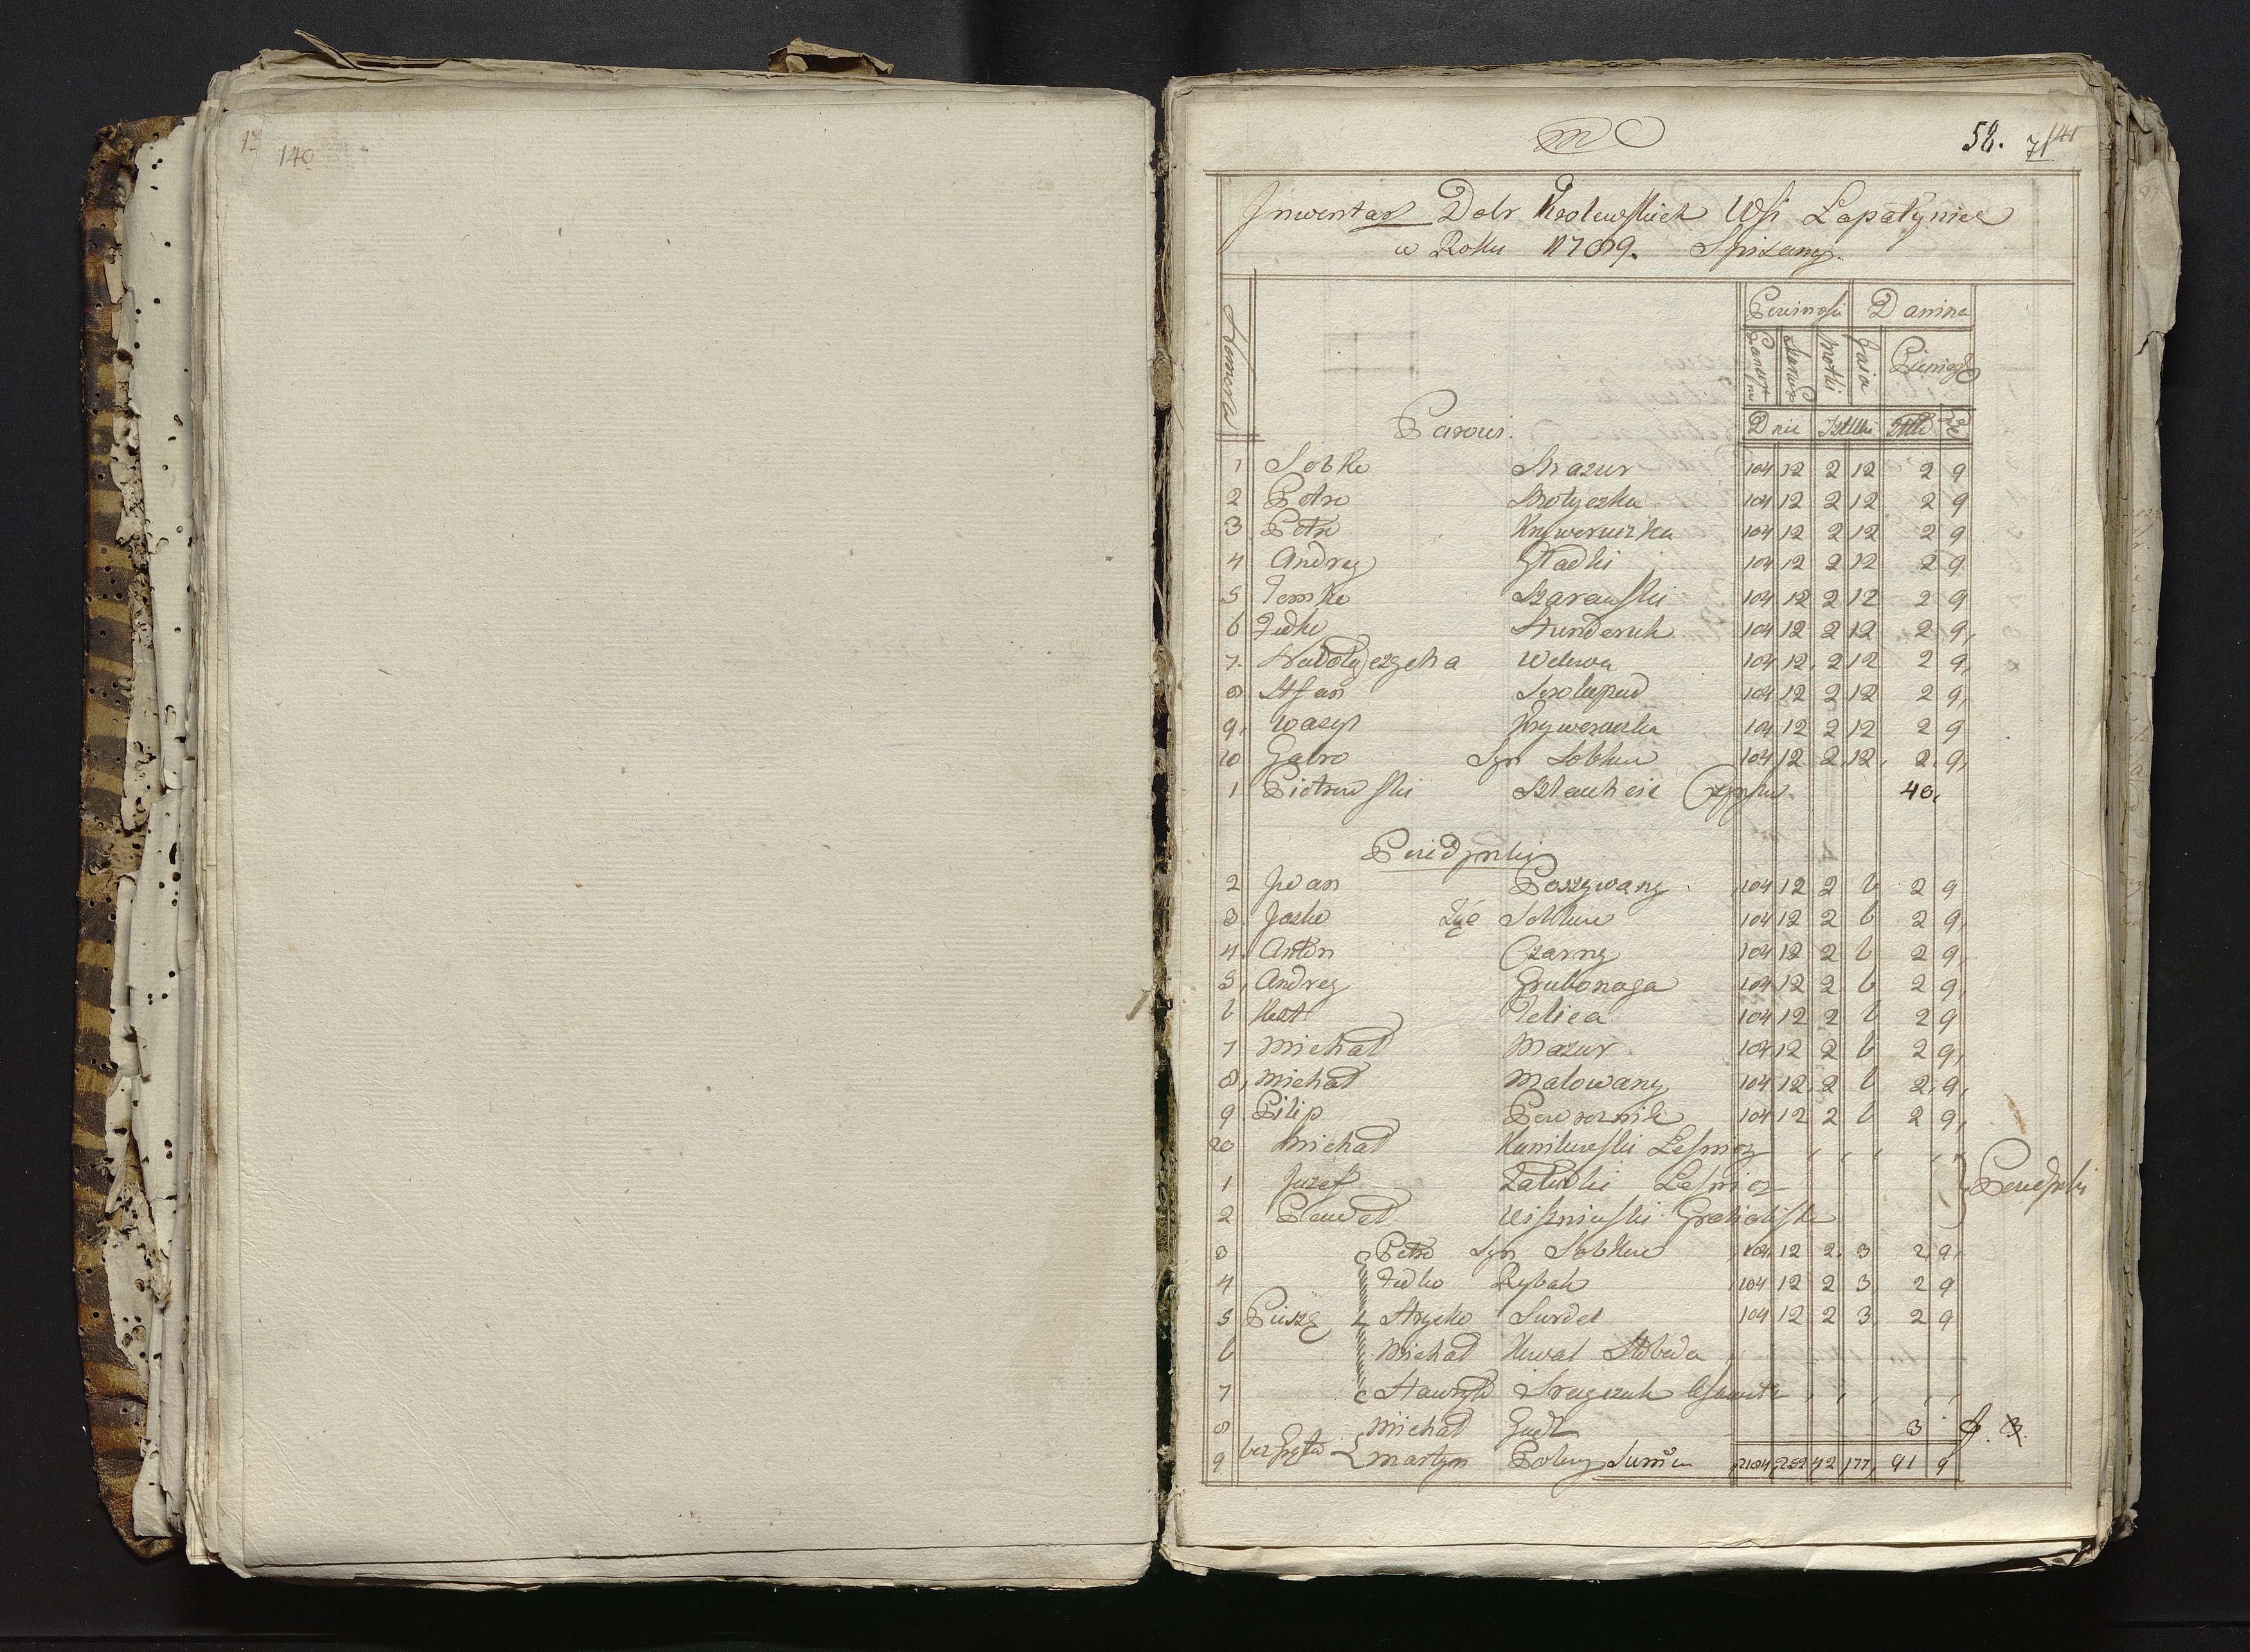 13 140
58. 71 141
Inwentarz Dobr Krolewskich Wsi Łapatyniec
w Roku 1789. Spisany.
Numera
Powiność Danina
Motki Jaia Pieniądze
Dnie Sztuki Złł gr
Parowi.
1 Sobko Mazur 104 12 2 12 2 9
2 Petro Motyczka 104 12 2 12 2 9
3 Petro Kryworuczka 104 12 2 12 2 9
4 Andrey Gładki 104 12 2 12 2 9
5 Tomko Szarawski 104 12 2 12 2 9
6 Fedko 104 12 2 12 2 9,
7. Wdowa 104 12 2 12 2 9,
8 Stefan 104 12 2 12 2 9,
9, Wasyl Kryworuczka 104 12 2 12 2 9
10 Gabro Syn Sobkow 104 12 2 12 2 9,
1 Piotrowski Szlachcic Czynszow 40,
Poiedynki
2 Jwan Poszywany 104 12 2 6 2 9
3 Jasko Zięć Sobkow 104 12 2 6 2 9,
4. Anton Czarny 104 12 2 6 2 9,
5, Andrey Grubonoga 104 12 2 6 2 9,
6 Telica 104 12 2 6 2 9
7 Michał Mazur 104 12 2 6 2 9,
8, Michał Malowany 104 12 2 6 2 9,
9 Pilip Powroznik 104 12 2 6 2 9,
20 Michał Leśniczy
1 Juzef Załuski Leśniczy Poiedynki
2 Paweł Wiszniewski Gracialista
3 Petro Syn Sobkow 104 12 2 3 2 9,
4 Fedko Rybak 104 12 2 3 2 9
5 Piesze Hryńko Surdel 104 12 2 3 2 9
6 Michał Kowal
7
8 Michał 3
9 Martyn Summa 2184 252 42 177 91 9